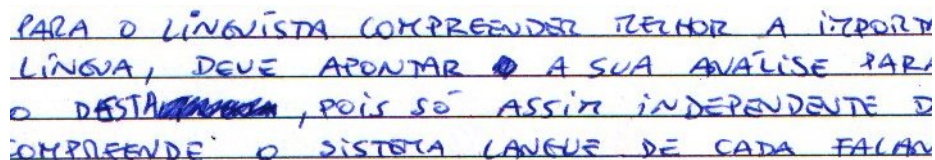 PARA O LINGUÍSTA COMPREENDER MELHOR A IMPORTA
LÍNGUA, DEVE APONTAR A SUA ANÁLISE PARA
O DESTA , POIS SÓ ASSIM INDEPENDENTE D
COMPREENDE O SISTEMA LANGUE DE CADA FALAN